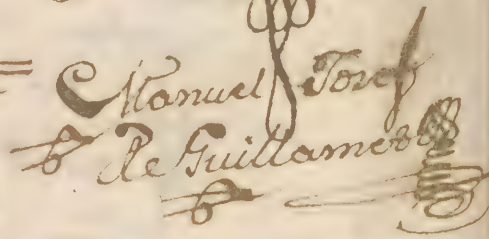 Manuel Josef
de Guillamet